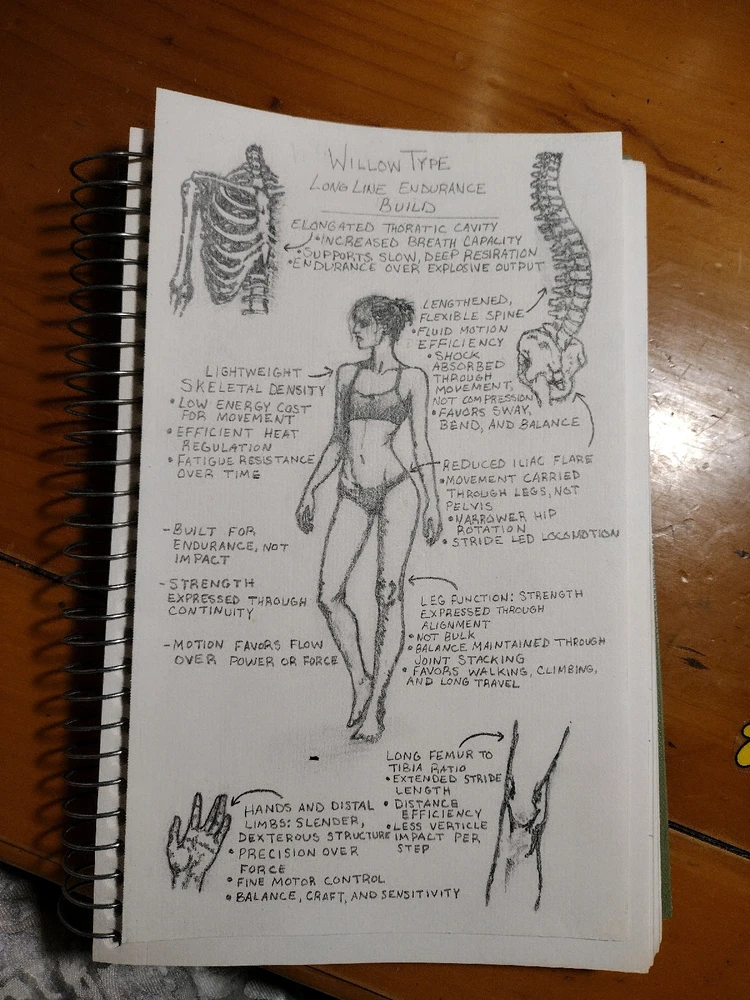 WILLOW TYPE
LONG LINE ENDURANCE
BUILD
ELONGATED THORATIC CAVITY
• INCREASED BREATH CAPACITY
• SUPPORTS SLOW, DEEP RESIRATION
• ENDURANCE OVER EXPLOSIVE OUTPUT
LENGTHENED,
FLEXIBLE SPINE
• FLUID MOTION
EFFICIENCY
• SHOCK
ABSORBED
THROUGH
MOVEMENT,
NOT COMPRESSION
• FAVORS SWAY,
BEND, AND BALANCE
LIGHTWEIGHT
SKELETAL DENSITY
• LOW ENERGY COST
FOR MOVEMENT
• EFFICIENT HEAT
REGULATION
• FATIGUE RESISTANCE
OVER TIME
REDUCED ILIAC FLARE
• MOVEMENT CARRIED
THROUGH LEGS, NOT
PELVIS
• NARROWER HIP
ROTATION
• STRIDE LED LOCOMOTION
- BUILT FOR
ENDURANCE, NOT
IMPACT
- STRENGTH
EXPRESSED THROUGH
CONTINUITY
- MOTION FAVORS FLOW
OVER POWER OR FORCE
LEG FUNCTION: STRENGTH
EXPRESSED THROUGH
ALIGNMENT
• NOT BULK
• BALANCE MAINTAINED THROUGH
JOINT STACKING
• FAVORS WALKING, CLIMBING,
AND LONG TRAVEL
LONG FEMUR TO
TIBIA RATIO
• EXTENDED STRIDE
LENGTH
• DISTANCE
EFFICIENCY
• LESS VERTICLE
IMPACT PER
STEP
HANDS AND DISTAL
LIMBS: SLENDER,
DEXTEROUS STRUCTURE
• PRECISION OVER
FORCE
• FINE MOTOR CONTROL
• BALANCE, CRAFT, AND SENSITIVITY